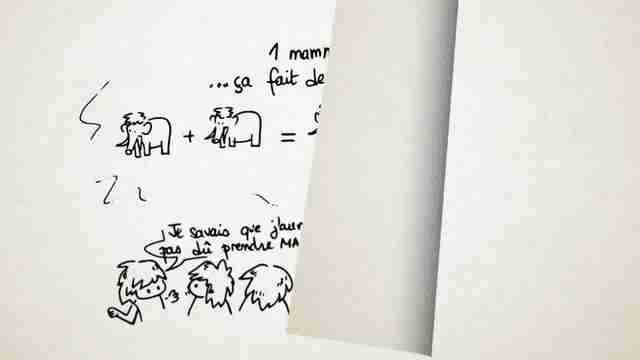 1 mamm
...ça fait de
+ =
Je savais que j'aur
pas dû prendre MA